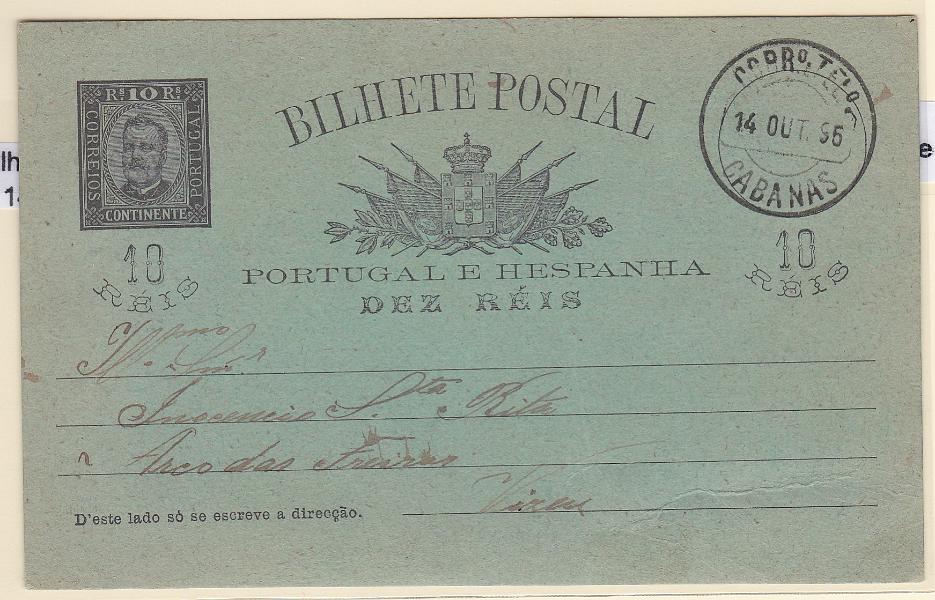 Rs. 10 Rs
CORREIOS
PORTUGAL
CONTINENTE
BILHETE POSTAL
CORRO. TELO.
14 OUT. 95
CABANAS
10
RÉIS
10
RÉIS
PORTUGAL E HESPANHA
DEZ RÉIS
Illmo Snr
Inocencio S.ta Rita
Arco das Freiras
Vizeu
D'este lado só se escreve a direcção.
lh
e
14